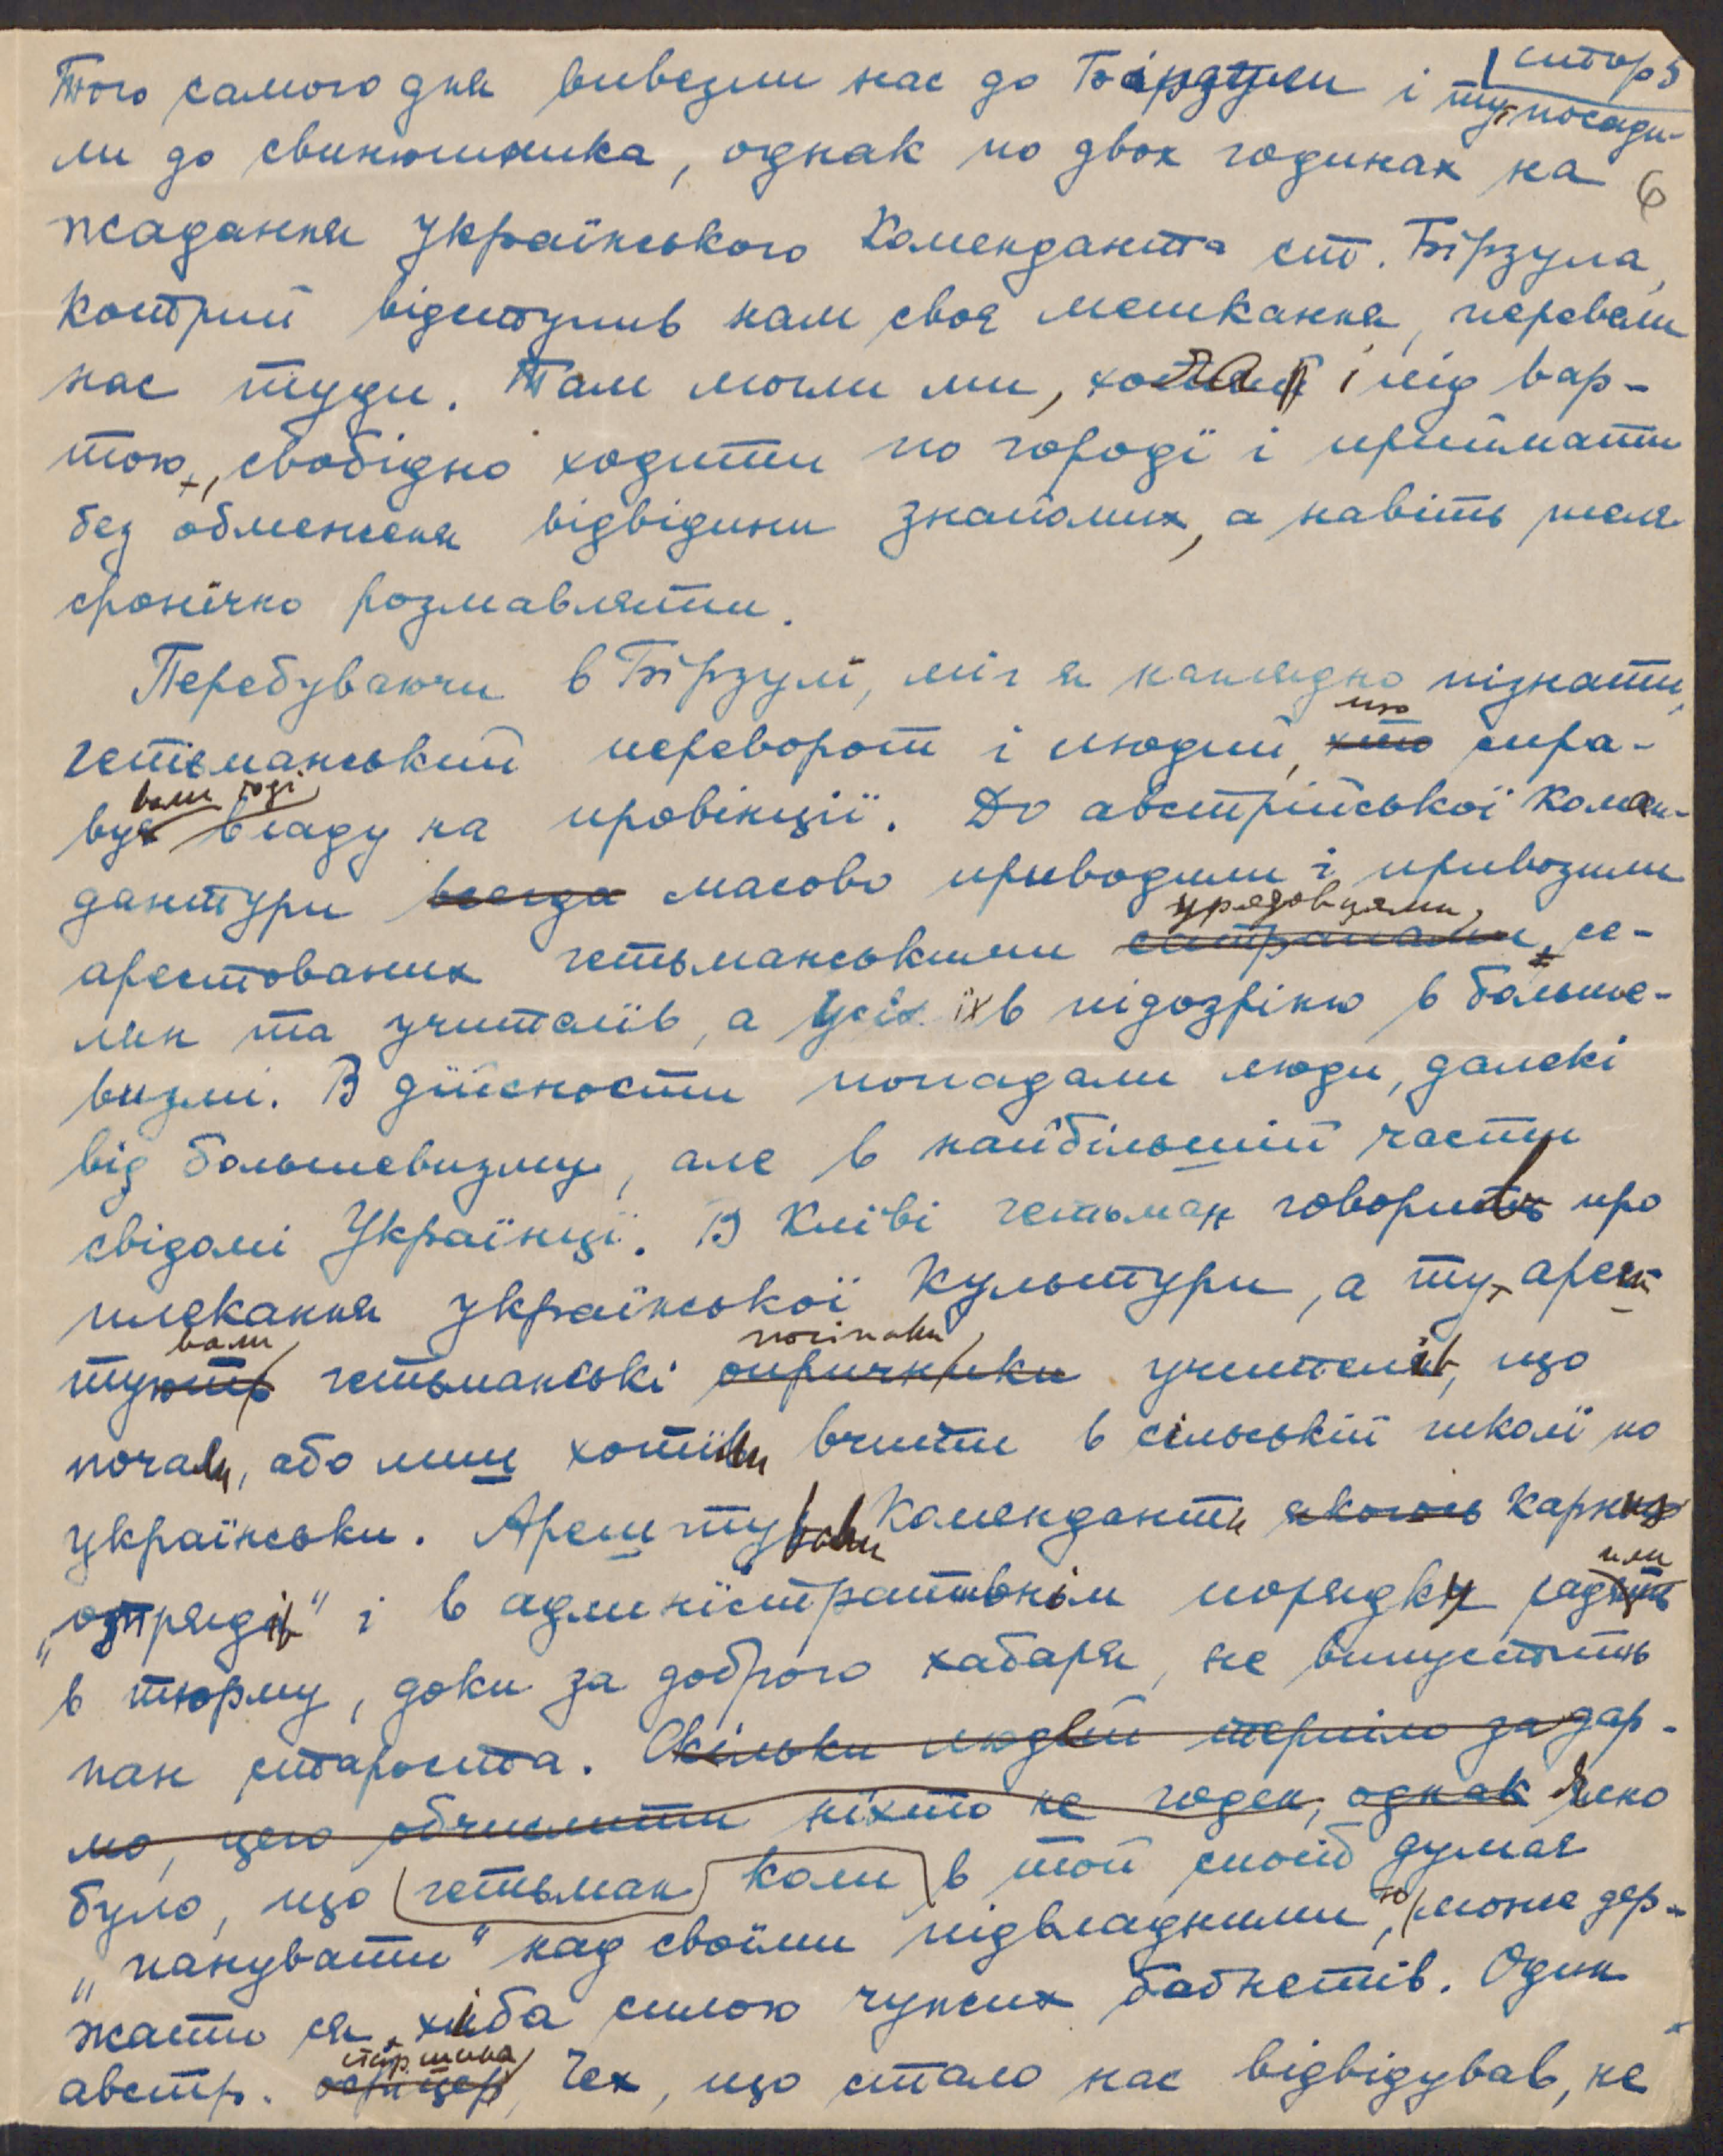 стор 5
Того самого дня вивезли нас до Бірзули і ту посади-
ли до свинюшника, однак по двох годинах на
6
жадання Українського Коменданта ст. Бірзула,
котрий відступив нам своє мешкання, перевели
нас туди. Там могли ми, хоча й і під вар-
тою, свобідно ходити по городі і приймати
без обмеження відвідини знайомих, а навіть теле
фонічно розмавляти.
Перебуваючи в Бірзулі, міг я наглядно пізнати
гетьманський переворот і людий, хто що спра-
вує вали тоді владу на провінції. До австрійської Комен-
дантури всегда масово приводили і привозили
арестованих гетьманськими сатрапами урядовцями, се-
лян та учителів, а усіх їх в підозріню в больше-
визмі. В дїйсности попадали люди, далекі
від большевизму, але в найбільший части
свідомі Українці. В Київі гетьман говорить про
плекання української культури, а ту арешт
тують вали гетьманські опричники посіпаки учителів, що
почали, або лиш хотіли вчити в сільській школі по
українськи. Арештували Коменданти якогось карних
„отрядів" і в адміністративнім порядку садять или
в тюрму, доки за доброго хабаря, не випустить
пан староста. Скільки людей терпіло задар-
мо, цего обчислити ніхто не годен, однак Ясно
було, що гетьман коли в той спосіб думає
„панувати" над своїми підвладними, то може дер-
жати ся хиба силою чужих багнетів. Один
австр. офіцер старшина, Чех, що стало нас відвідував, не